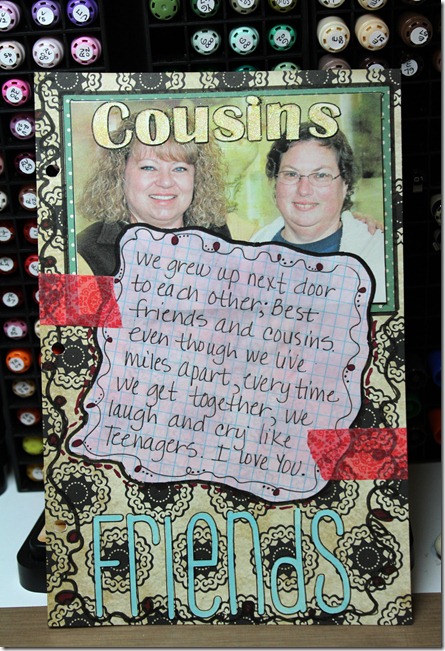 Cousins
We grew up next door
to each other; Best
friends and cousins.
even though we live
miles apart, every time
we get together, we
laugh and cry like
Teenagers. I love You.
Friends